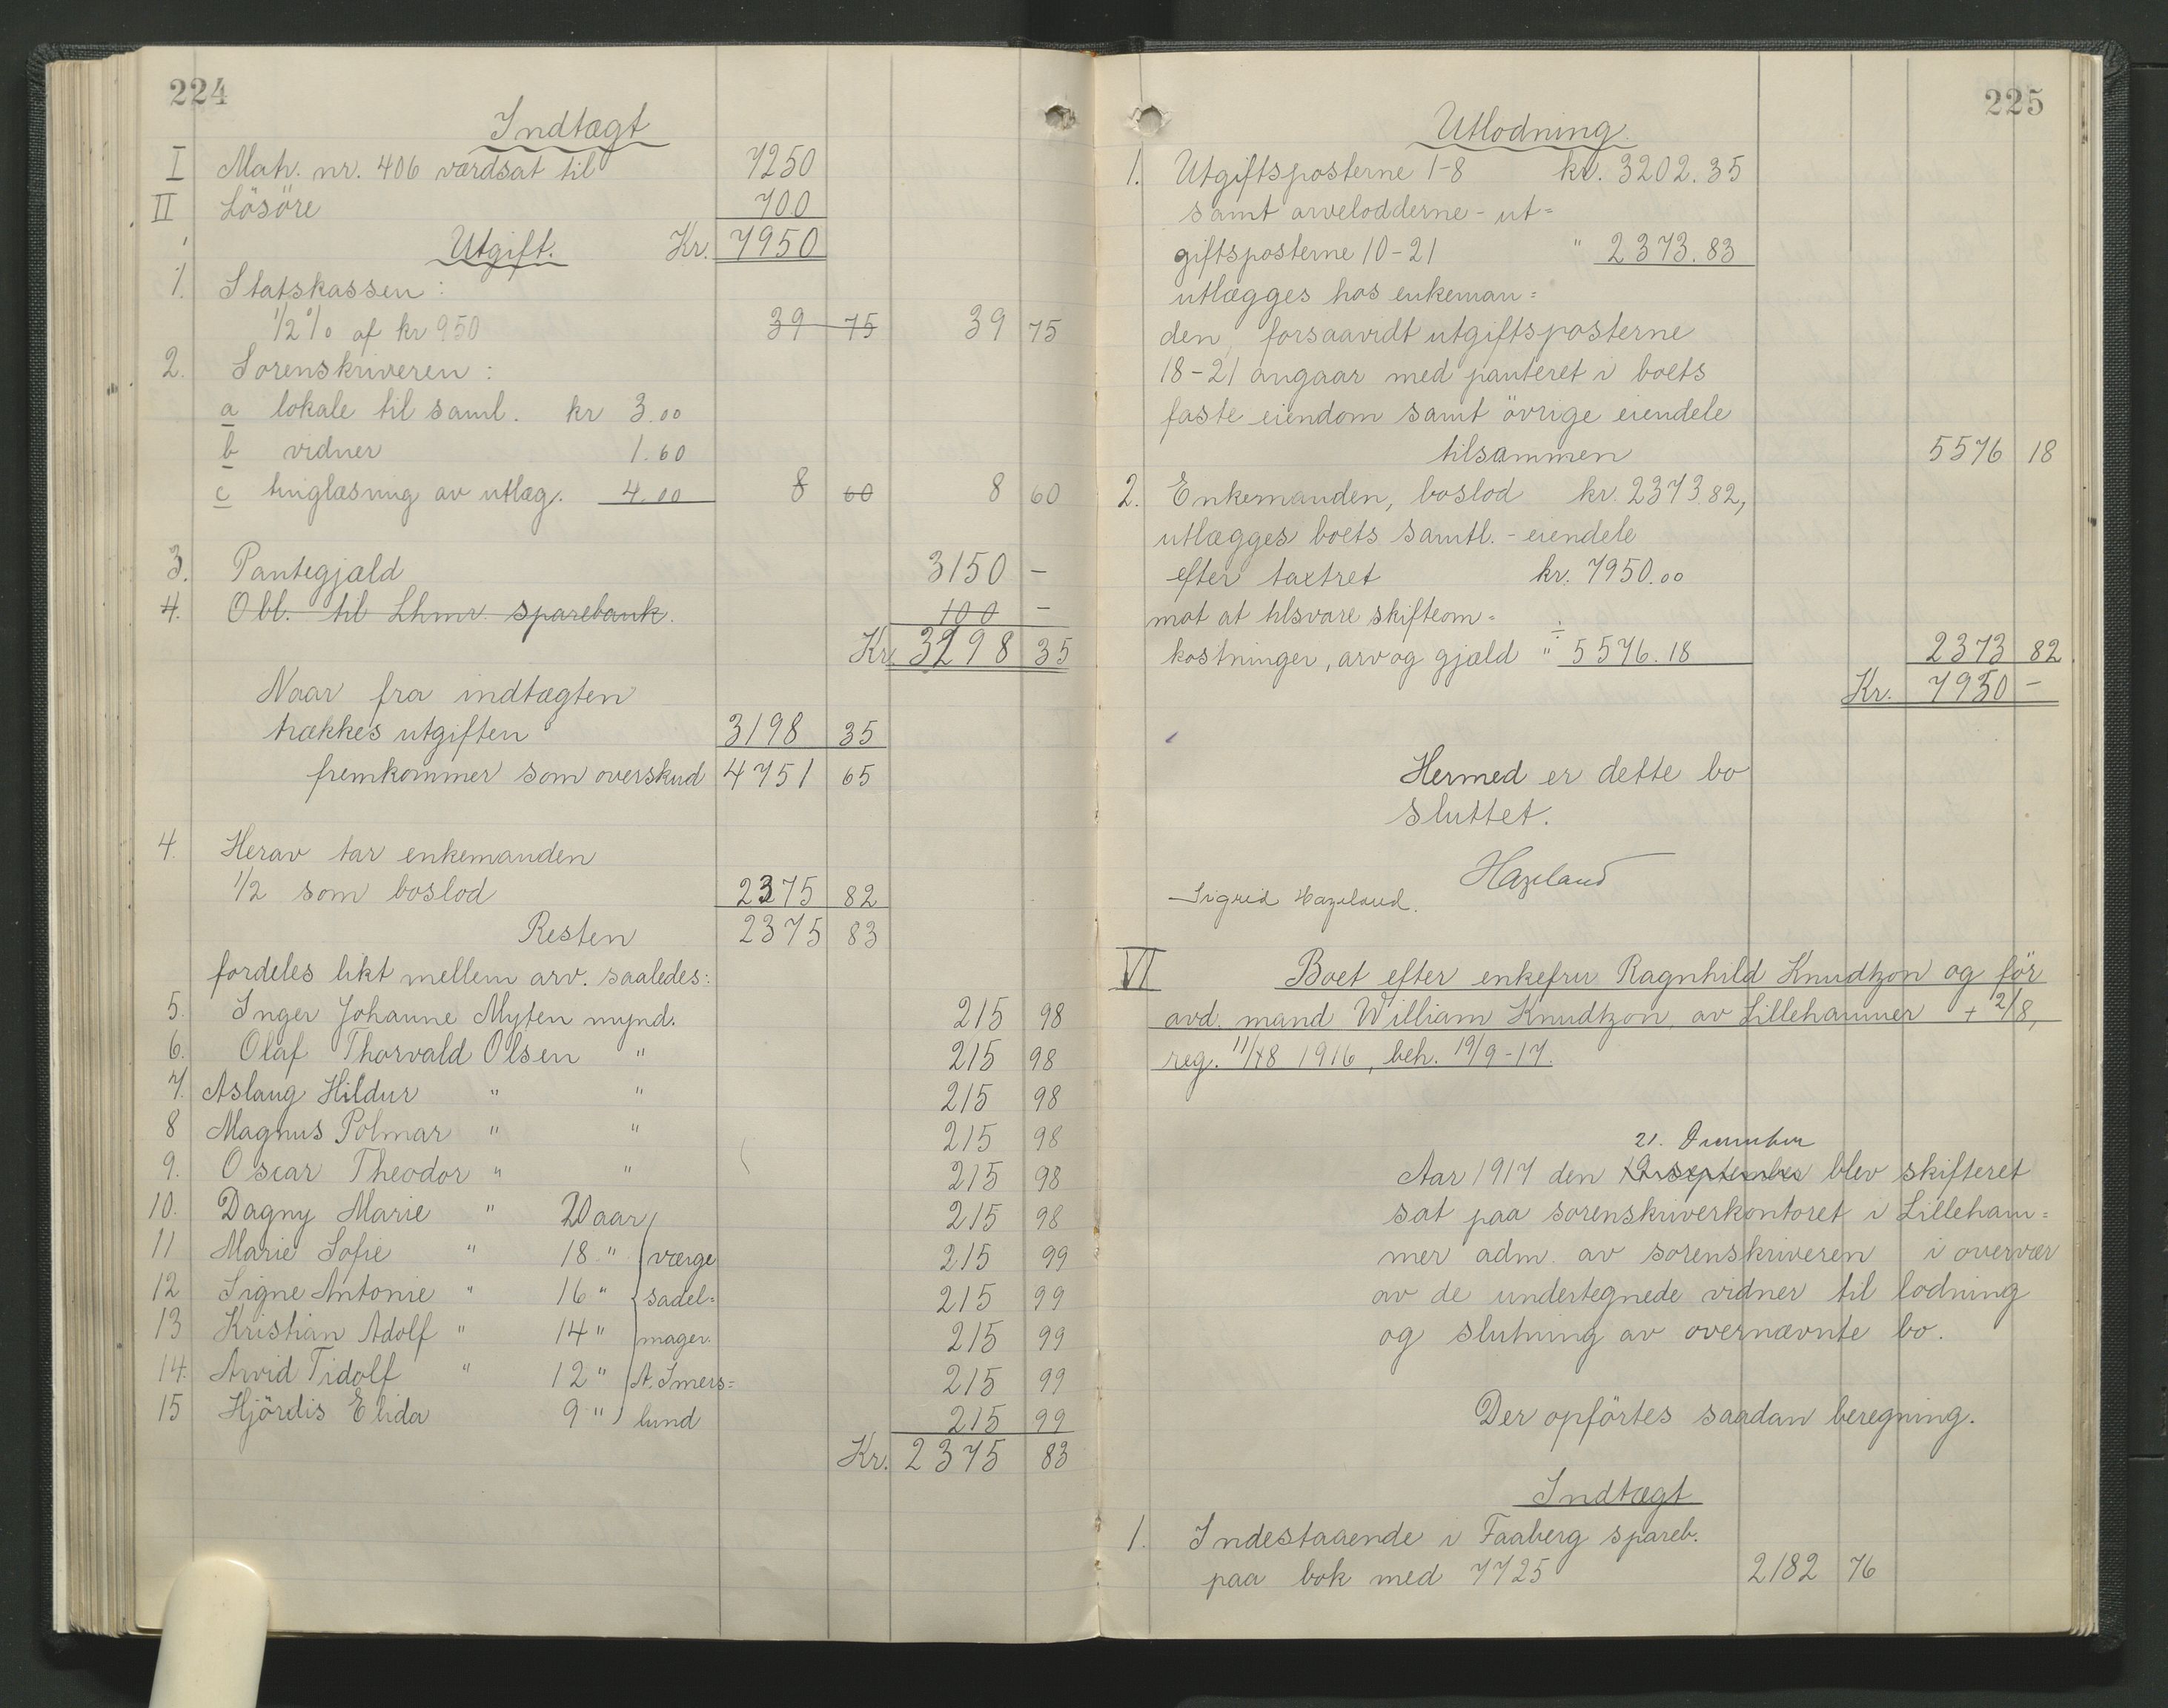 224
Indtægt
I Mah. nr. 406 værdsat til 7250
II Lösöre 700
Utgift. Kr. 7950
1. Statskassen:
1/2 % af kr 950 39 75 39 75
2. Sorenskriveren:
a lokale til saml. kr 3.00
b vidner 1.60
c tinglæsning av utlæg. 4.00 8 60 8 60
3. Pantegjæld 3150 -
4. Obl. til Lhmr. sparebank. 100 -
Kr. 3298 35
Naar fra indtægten
trækkes utgiften 3198 35
fremkommer som overskud 4751 65
4. Herav tar enkemanden
1/2 som boslod 2375 82
Resten 2375 83
fordeles likt mellem arv. saaledes:
5. Inger Johanne Myten mynd. 215 98
6. Olaf Thorvald Olsen " 215 98
7. Aslaug Hildur " " 215 98
8 Magnus Polmar " " 215 98
9. Oscar Theodor " " 215 98
10. Dagny Marie " 20 aar 215 98
11 Marie Sofie " 18 " værge 215 99
12 Signe Antonie " 16 " sadel= 215 99
13 Kristian Adolf " 14 " mager. 215 99
14. Arvid Tidolf " 12 " A. Imers= 215 99
15 Hjördis Elida 9 " lund 215 99
Kr. 2375 83
225
Utlodning.
1. Utgiftsposterne 1-8 kr. 3202.35
samt arvelodderne - ut=
giftsposterne 10-21 " 2373.83
utlægges hos enkeman=
den, forsaavidt utgiftsposterne
18-21 angaar med panteret i boets
faste eiendom samt övrige eiendele
tilsammen 5576 18
2. Enkemanden, boslod kr. 2373.82,
utlægges boets samtl. - eiendele
efter taxtret kr. 7950.00
mot at tilsvare skifteom=
kostninger, arv og gjæld ÷ " 5576.18 2373 82
Kr. 7950 -
Hermed er dette bo
sluttet.
Hazeland
Sigrid Hazeland.
VI Boet efter enkefru Ragnhild Knudtzon og för
avd. mand William Knudtzon av Lillehammer + 2/8,
reg. 11/48 1916, beh. 19/9-17.
21. December
Aar 1917 den 19 september blev skifteret
sat paa sorenskriverkontoret i Lilleham=
mer adm. av sorenskriveren i overvær
av de undertegnede vidner til lodning
og slutning av overnævnte bo.
Der opførtes saadan beregning.
Indtægt
1. Indestaaende i Faaberg spareb.
paa bok med 7725 2182 76